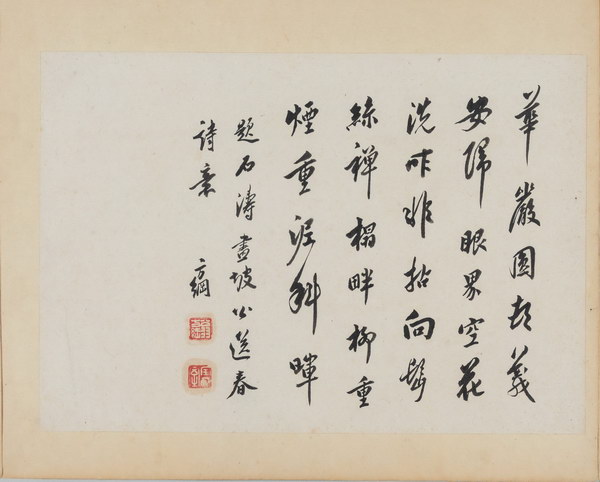 華嚴圓頓義
安歸眼界空花
洗昨非拈向鬢
絲禪榻畔柳重
煙重泥斜暉
題石濤畫坡公送春
詩意 方綱